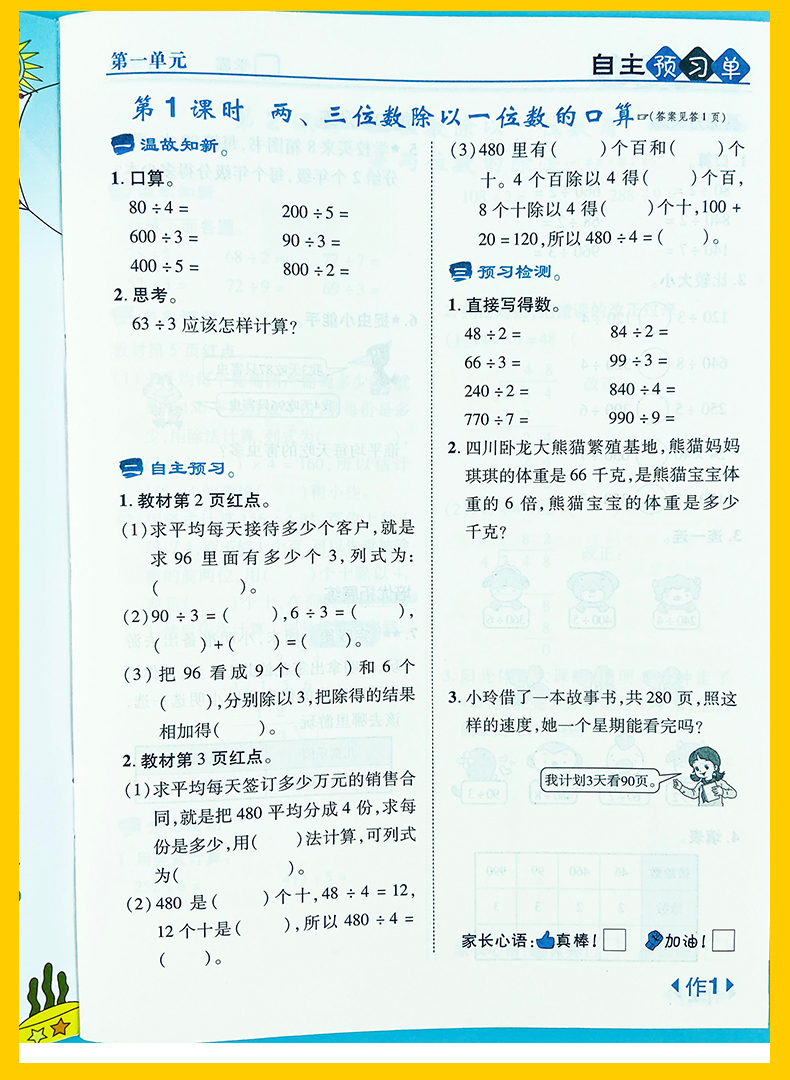 第一单元
自主预习单
第1课时 两、三位数除以一位数的口算☞(答案见答1页)
一 温故知新。
1. 口算。
80÷4= 200÷5=
600÷3= 90÷3=
400÷5= 800÷2=
2. 思考。
63÷3应该怎样计算?
二 自主预习。
1. 教材第2页红点。
(1)求平均每天接待多少个客户,就是
求96里面有多少个3,列式为:
( )。
(2)90÷3=( ),6÷3=( ),
( )+( )=( )。
(3)把96看成9个( )和6个
( ),分别除以3,把除得的结果
相加得( )。
2. 教材第3页红点。
(1)求平均每天签订多少万元的销售合
同,就是把480平均分成4份,求每
份是多少,用( )法计算,可列式
为( )。
(2)480是( )个十,48÷4=12,
12个十是( ),所以480÷4=
( )。
(3)480里有( )个百和( )个
十。4个百除以4得( )个百,
8个十除以4得( )个十,100+
20=120,所以480÷4=( )。
三 预习检测。
1. 直接写得数。
48÷2= 84÷2=
66÷3= 99÷3=
240÷2= 840÷4=
770÷7= 990÷9=
2. 四川卧龙大熊猫繁殖基地,熊猫妈妈
琪琪的体重是66千克,是熊猫宝宝体
重的6倍,熊猫宝宝的体重是多少
千克?
3. 小玲借了一本故事书,共280页,照这
样的速度,她一个星期能看完吗?
我计划3天看90页。
家长心语:真棒!□ 加油!□
作1